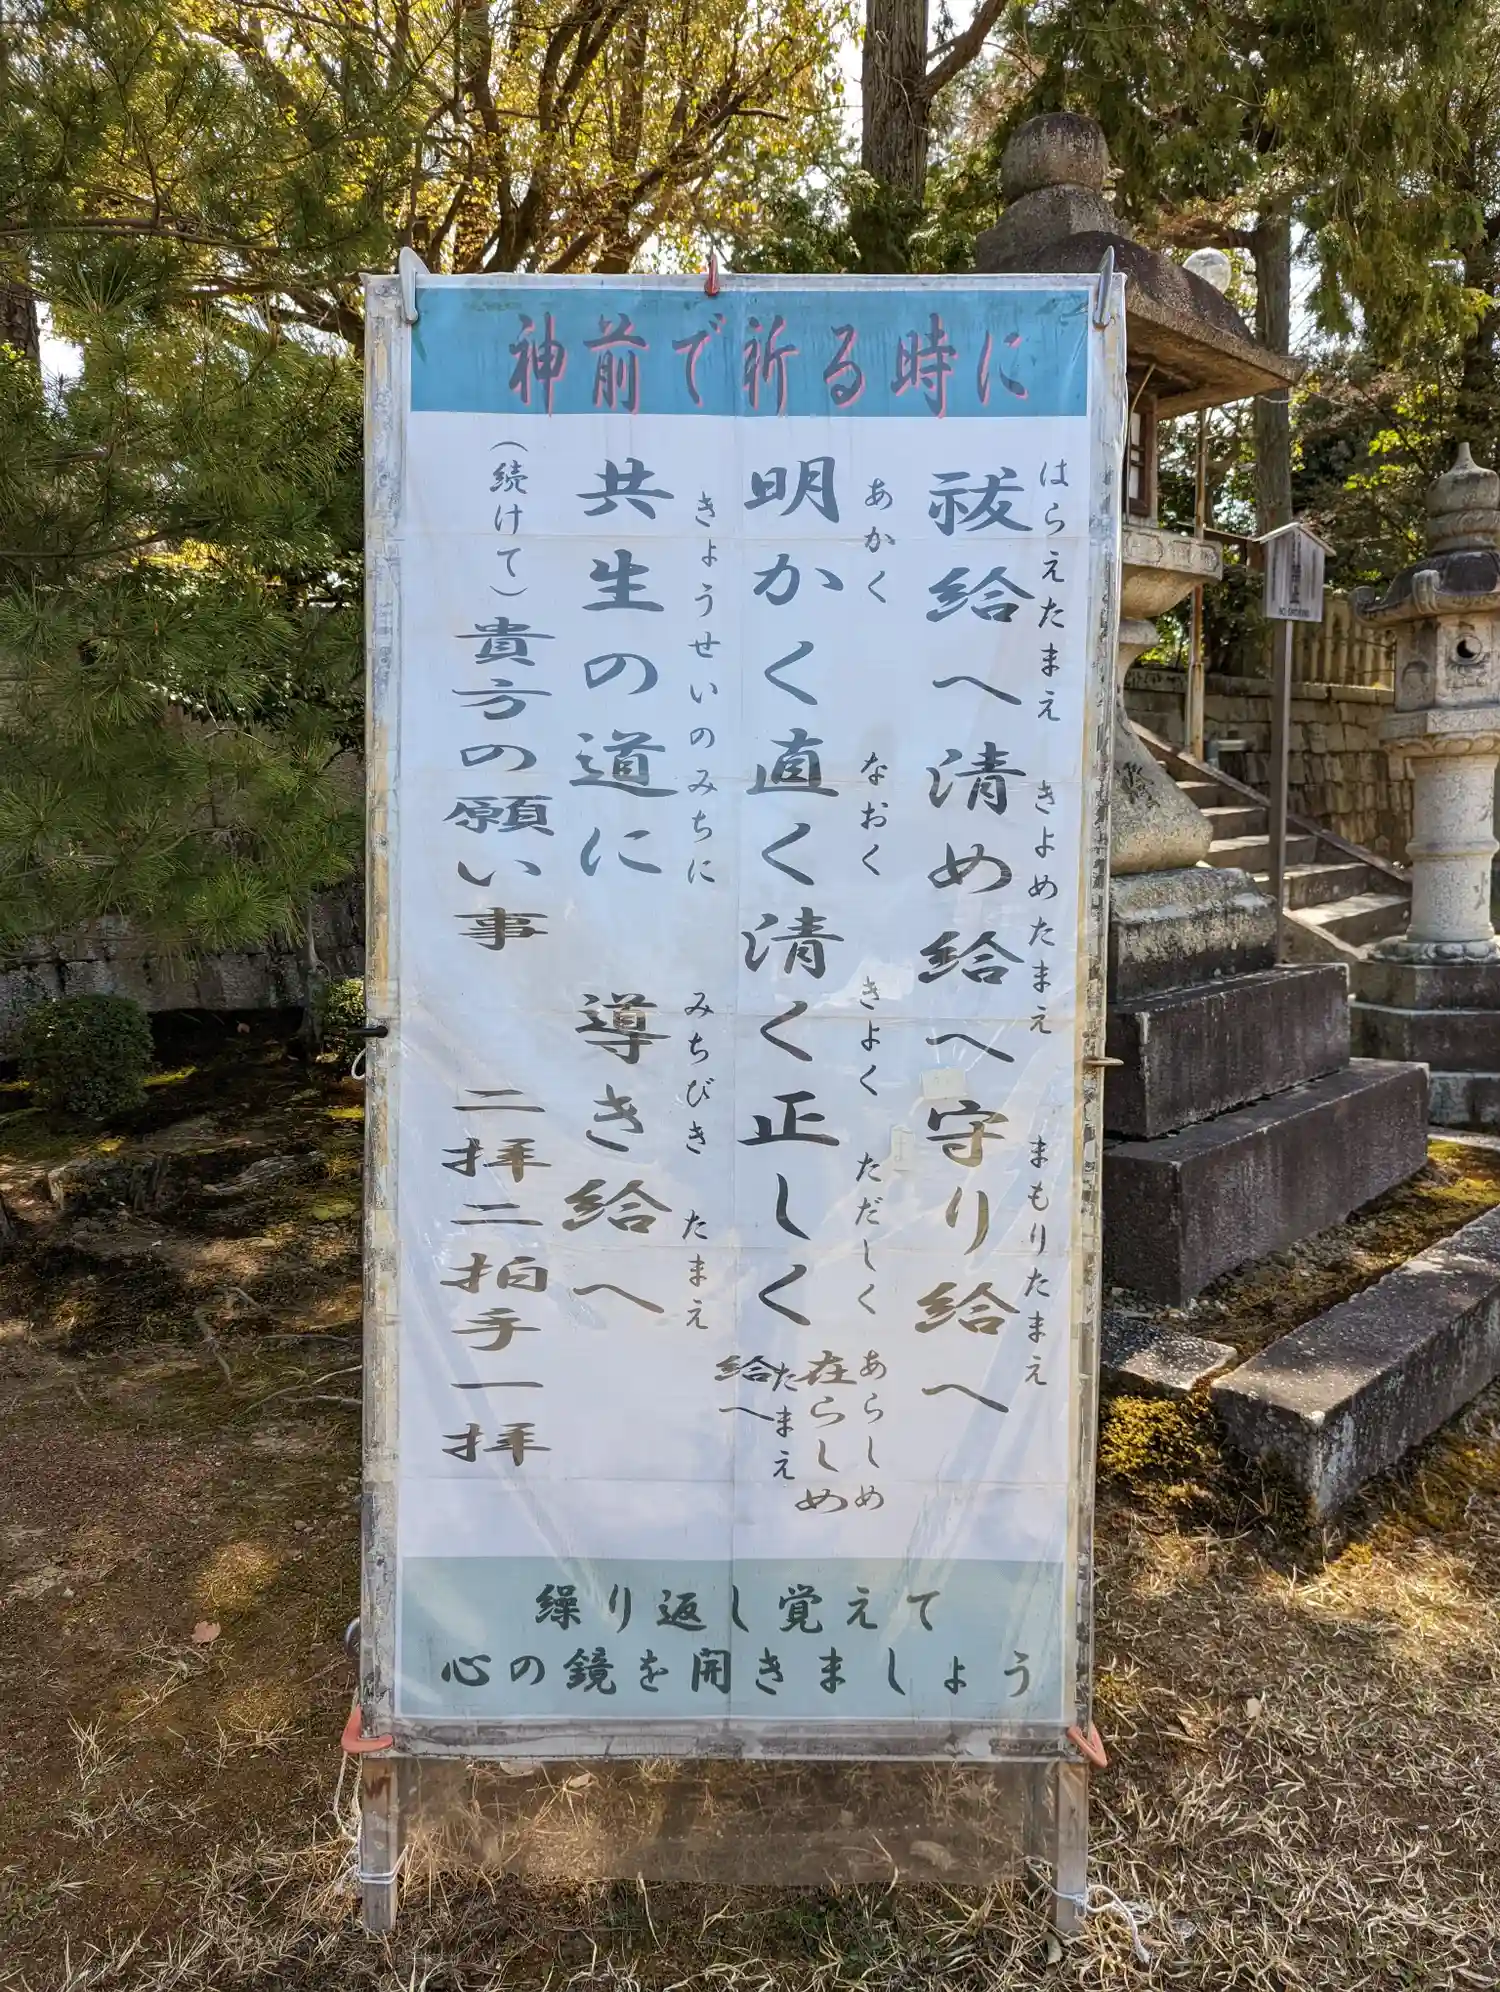 神前で祈る時に
祓給へ清め給へ 守り給へ
はらえたまえ きよめたまえ まもりたまえ
明かく直く清く正しく在らしめ給へ
あかく なおく きよく ただしく あらしめ たまえ
共生の道に 導き給へ
きょうせいのみちに みちびき たまえ
(続けて)貴方の願い事 二拝二拍手一拝
繰り返し覚えて
心の鏡を開きましょう